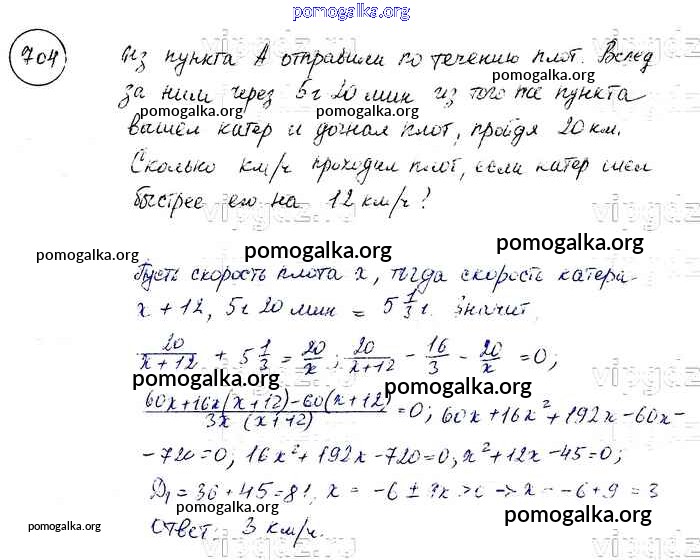 pomogalka.org
704 Из пункта А отправили по течению плот. Вслед
pomogalka.org
за ним через 5 ч 20 мин из того же пункта
pomogalka.org pomogalka.org
вышел катер и догнал плот, пройдя 20 км.
Сколько км/ч проходил плот, если катер шел
быстрее его на 12 км/ч?
vipgdz.ru
pomogalka.org pomogalka.org pomogalka.org
Пусть скорость плота x, тогда скорость катера -
x + 12, 5 ч 20 мин = 5 1/3 ч. Значит,
20/(x+12) + 5 1/3 = 20/x; 20/(x+12) - 16/3 - 20/x = 0;
pomogalka.org pomogalka.org
(60x+16x(x+12)-60(x+12))/(3x(x+12)) = 0; 60x+16x²+192x-60x-
-720=0, 16x²+192x-720=0, x²+12x-45=0;
D₁=36+45=81, x = -6 ± 9 x>0 → x = -6+9 = 3
Ответ: 3 км/ч.
pomogalka.org pomogalka.org pomogalka.org